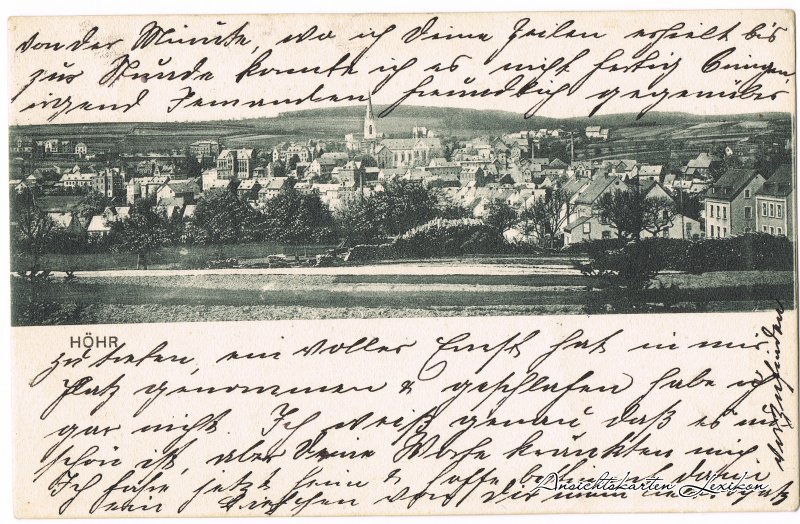 von der Minute, wo ich Deine Zeilen erhielt bis
zur Stunde konnte ich es nicht fertig bringen
irgend Jemanden freundlich gegenüber
HÖHR
zu treten, ein voller Ernst hat in mir
Platz genommen & geschlafen habe ich
gar nicht. Ich weiß genau daß es nicht
schön ist, aber Deine Worte kränkten mich
Ich fühle jetzt & hoffe
ein von Dir mein
Ansichtskarten-Lexikon